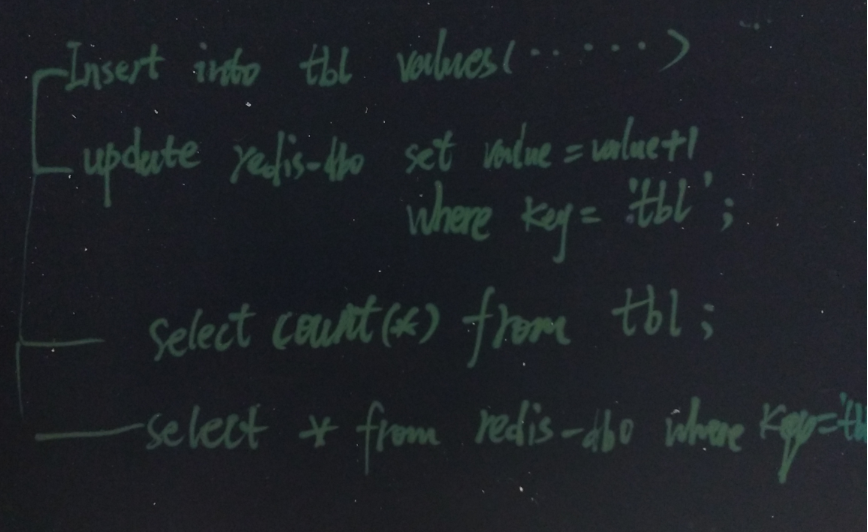 Insert into tbl values(······)
update redis-db0 set value=value+1
where key='tbl';
select count(*) from tbl;
select * from redis-db0 where key='tb